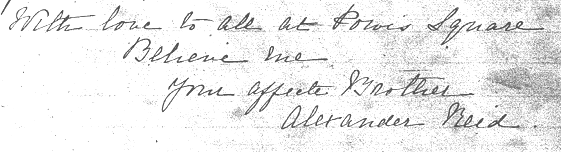 With love to all at Powis Square
Believe me
Your affecte Brother
Alexander Reid.